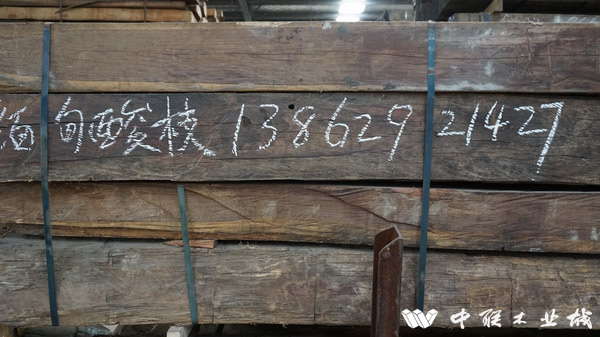 缅甸酸枝 13862921427
中联木业城